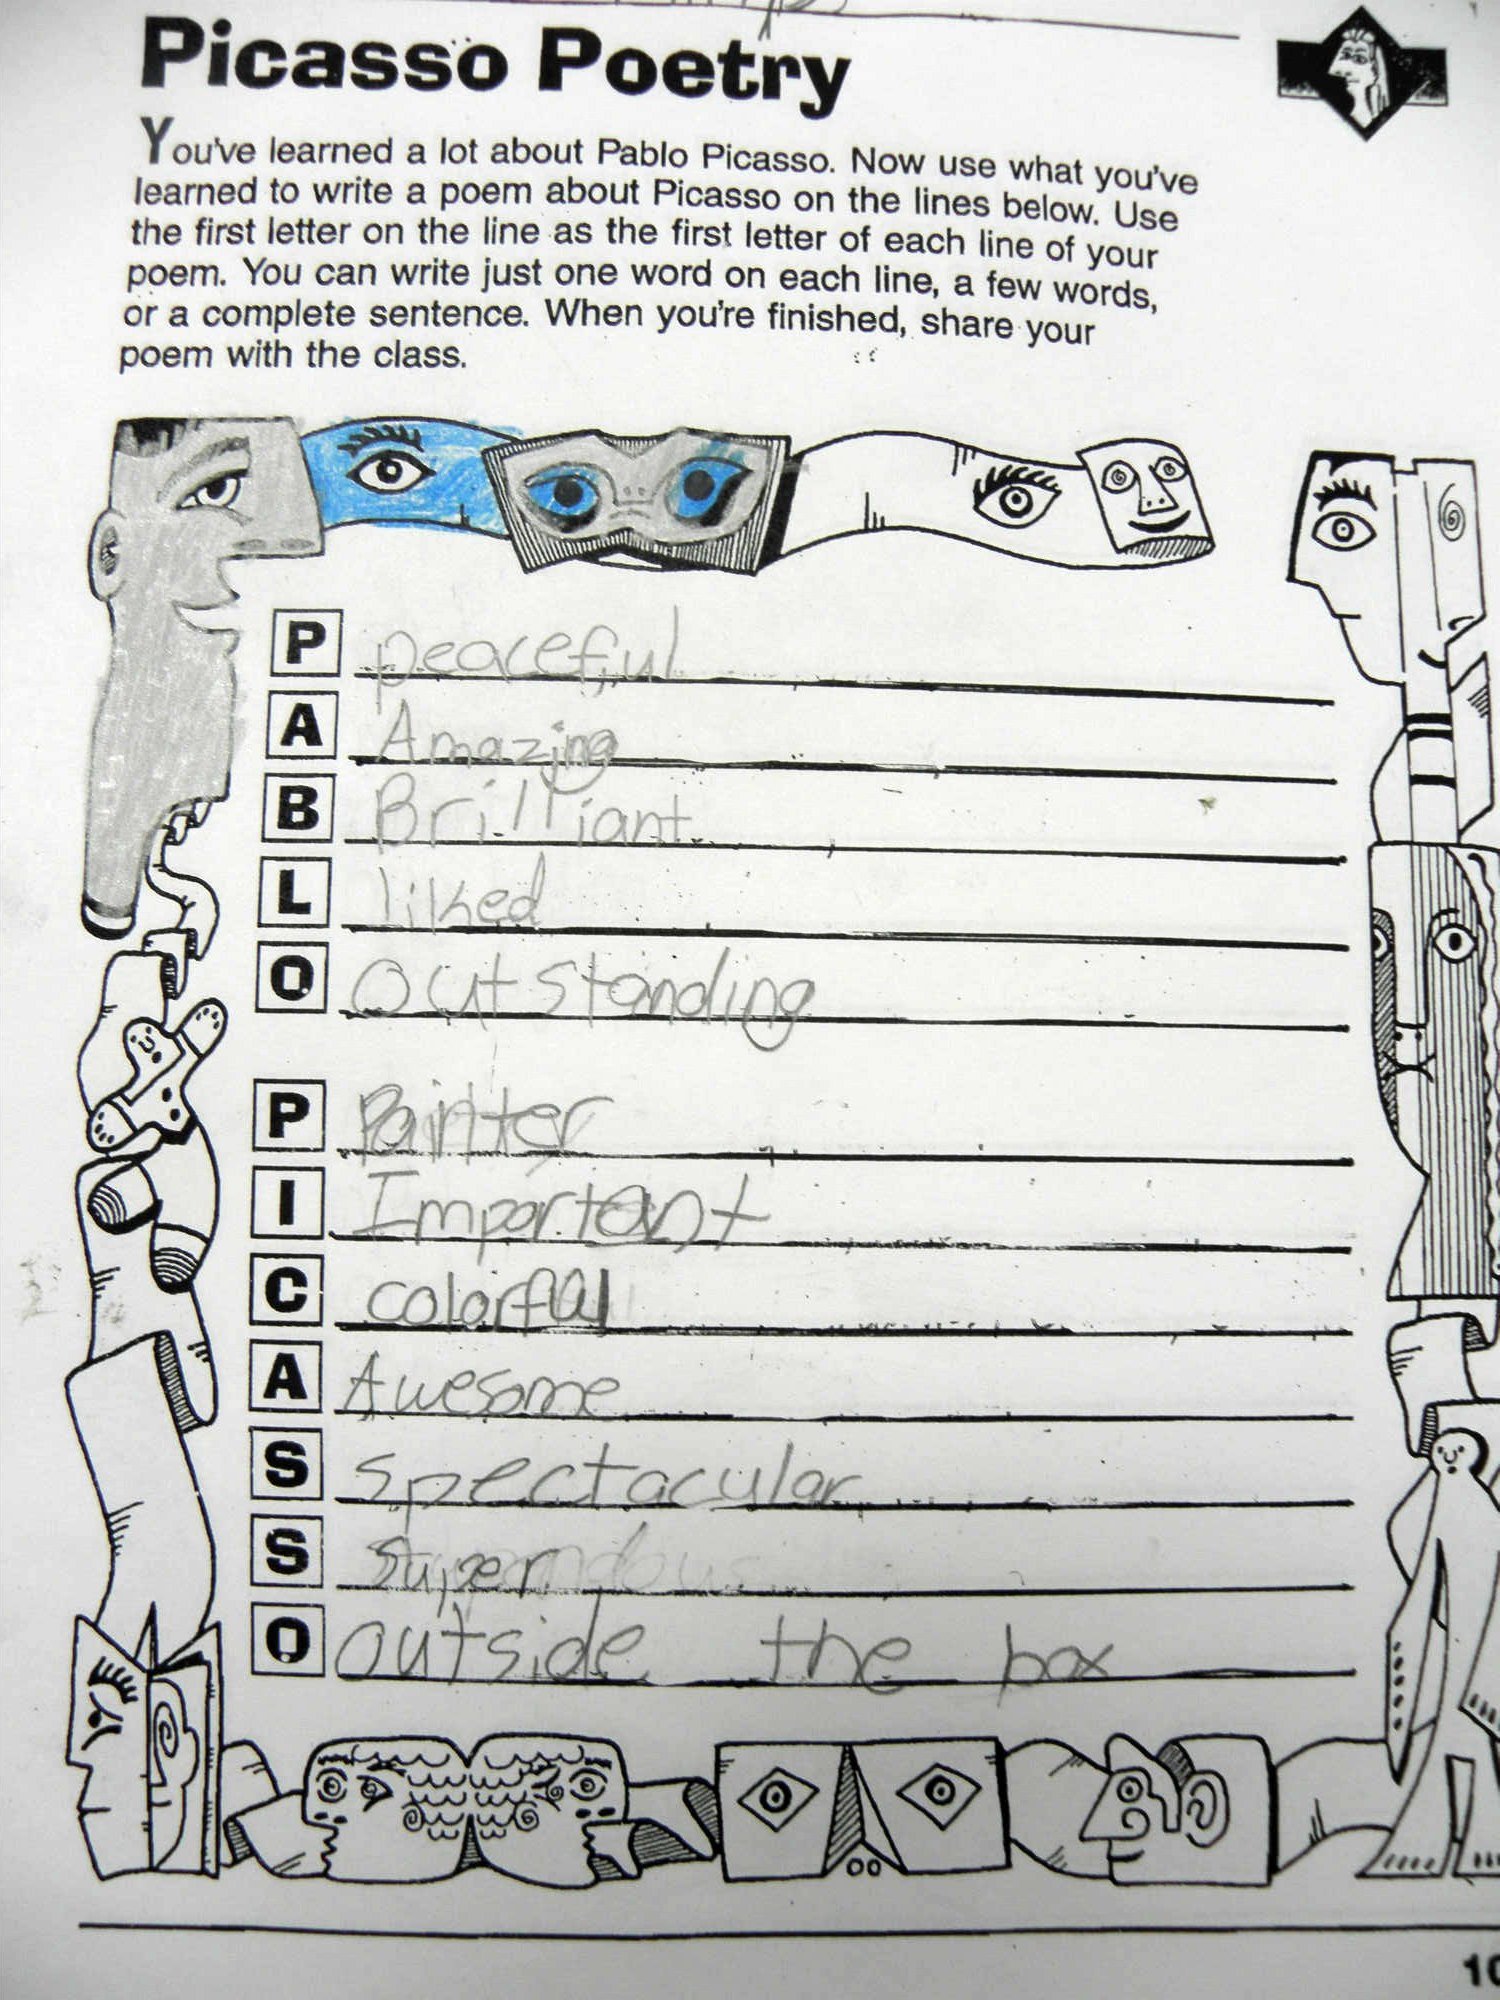 Picasso Poetry
You've learned a lot about Pablo Picasso. Now use what you've
learned to write a poem about Picasso on the lines below. Use
the first letter on the line as the first letter of each line of your
poem. You can write just one word on each line, a few words,
or a complete sentence. When you're finished, share your
poem with the class.
P peaceful
A Amazing
B Brilliant
L liked
O outstanding
P Painter
I Important
C colorful
A Awesome
S spectacular
S super
O outside the box